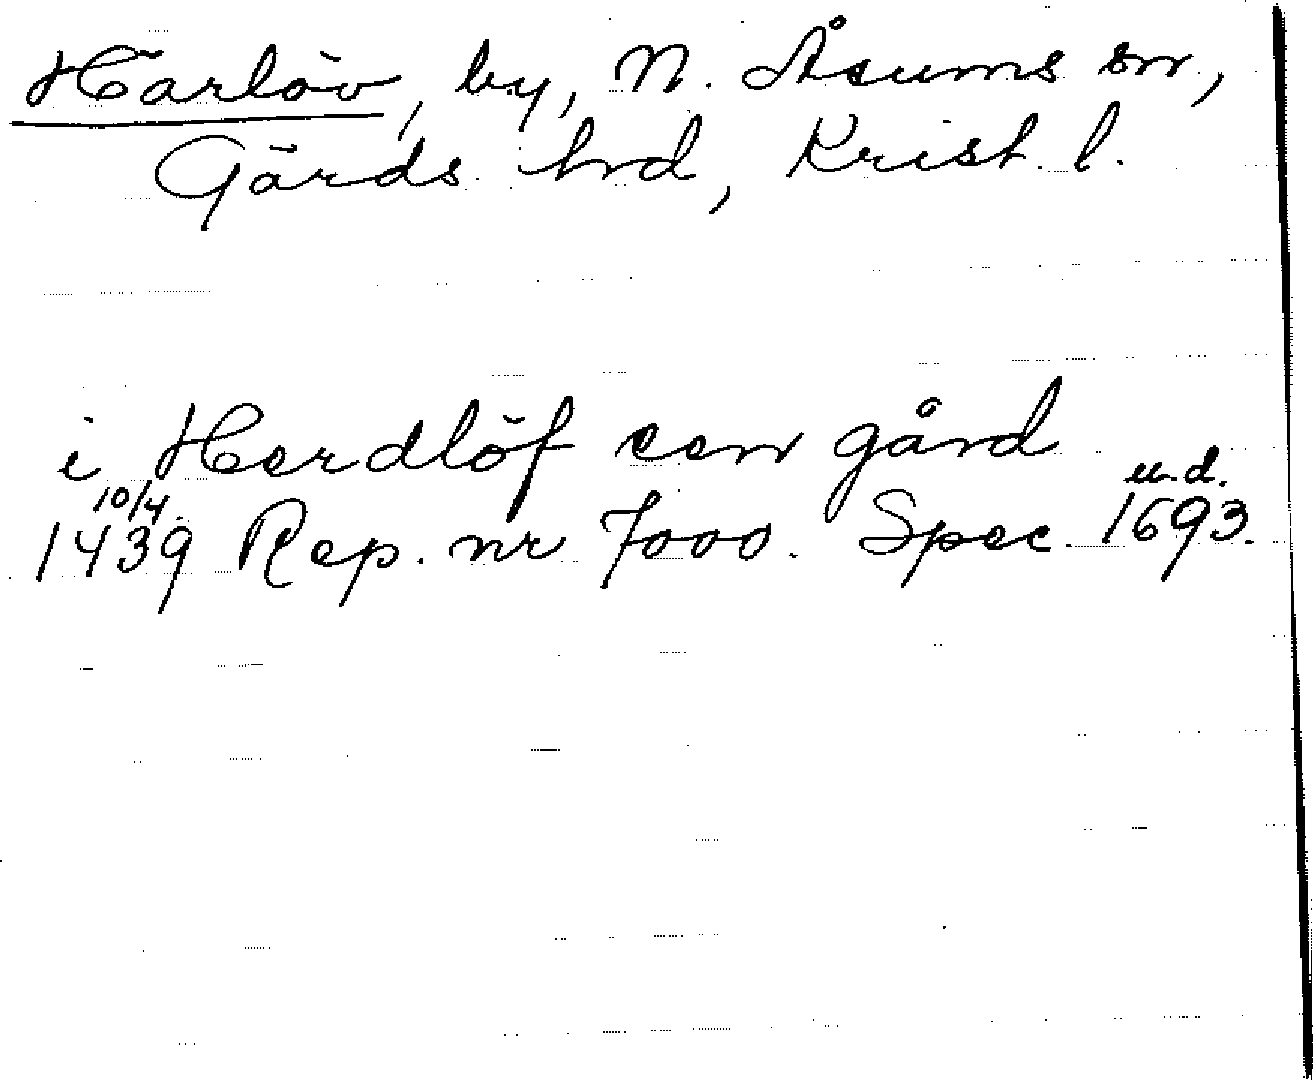 Härlöv, by, N. Åsums sn,
Gärds hd, Krist. l.
i Herdlöf een gård
10/4 u.d.
1439 Rep. nr 7000. Spec. 1693.